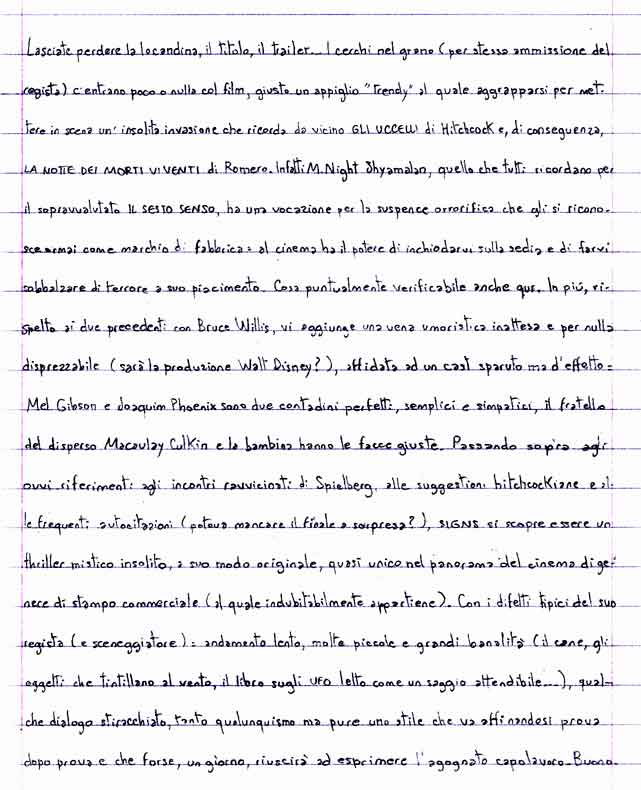 Lasciate perdere la locandina, il titolo, il trailer... I cerchi nel grano (per stessa ammissione del
regista) c'entrano poco o nulla col film, giusto un appiglio "trendy" al quale aggrapparsi per met-
tere in scena un'insolita invasione che ricorda da vicino GLI UCCELLI di Hitchcock e, di conseguenza,
LA NOTTE DEI MORTI VIVENTI di Romero. Infatti M. Night Shyamalan, quello che tutti ricordano per
il sopravvalutato IL SESTO SENSO, ha una vocazione per la suspence orrorifica che gli si ricono-
sce ormai come marchio di fabbrica: al cinema ha il potere di inchiodarvi sulla sedia e di farvi
sobbalzare di terrore a suo piacimento. Cosa puntualmente verificabile anche qui. In più, ri-
spetto ai due precedenti con Bruce Willis, vi aggiunge una vena umoristica inattesa e per nulla
disprezzabile (sarà la produzione Walt Disney?), affidata ad un cast sparuto ma d'effetto:
Mel Gibson e Joaquim Phoenix sono due contadini perfetti, semplici e simpatici, il fratello
del disperso Macaulay Culkin e la bambina hanno le facce giuste. Passando sopra agli
ovvi riferimenti agli incontri ravvicinati di Spielberg, alle suggestioni hitchcockiane e al-
le frequenti autocitazioni (poteva mancare il finale a sorpresa?), SIGNS si scopre essere un
thriller mistico insolito, a suo modo originale, quasi unico nel panorama del cinema di ge-
nere di stampo commerciale (al quale indubitabilmente appartiene). Con i difetti tipici del suo
regista (e sceneggiatore): andamento lento, molte piccole e grandi banalità (il cane, gli
oggetti che tintillano al vento, il libro sugli UFO letto come un saggio attendibile...), qual-
che dialogo stiracchiato, tanto qualunquismo ma pure uno stile che va affinandosi prova
dopo prova e che forse, un giorno, riuscirà ad esprimere l'agognato capolavoro. Buono.